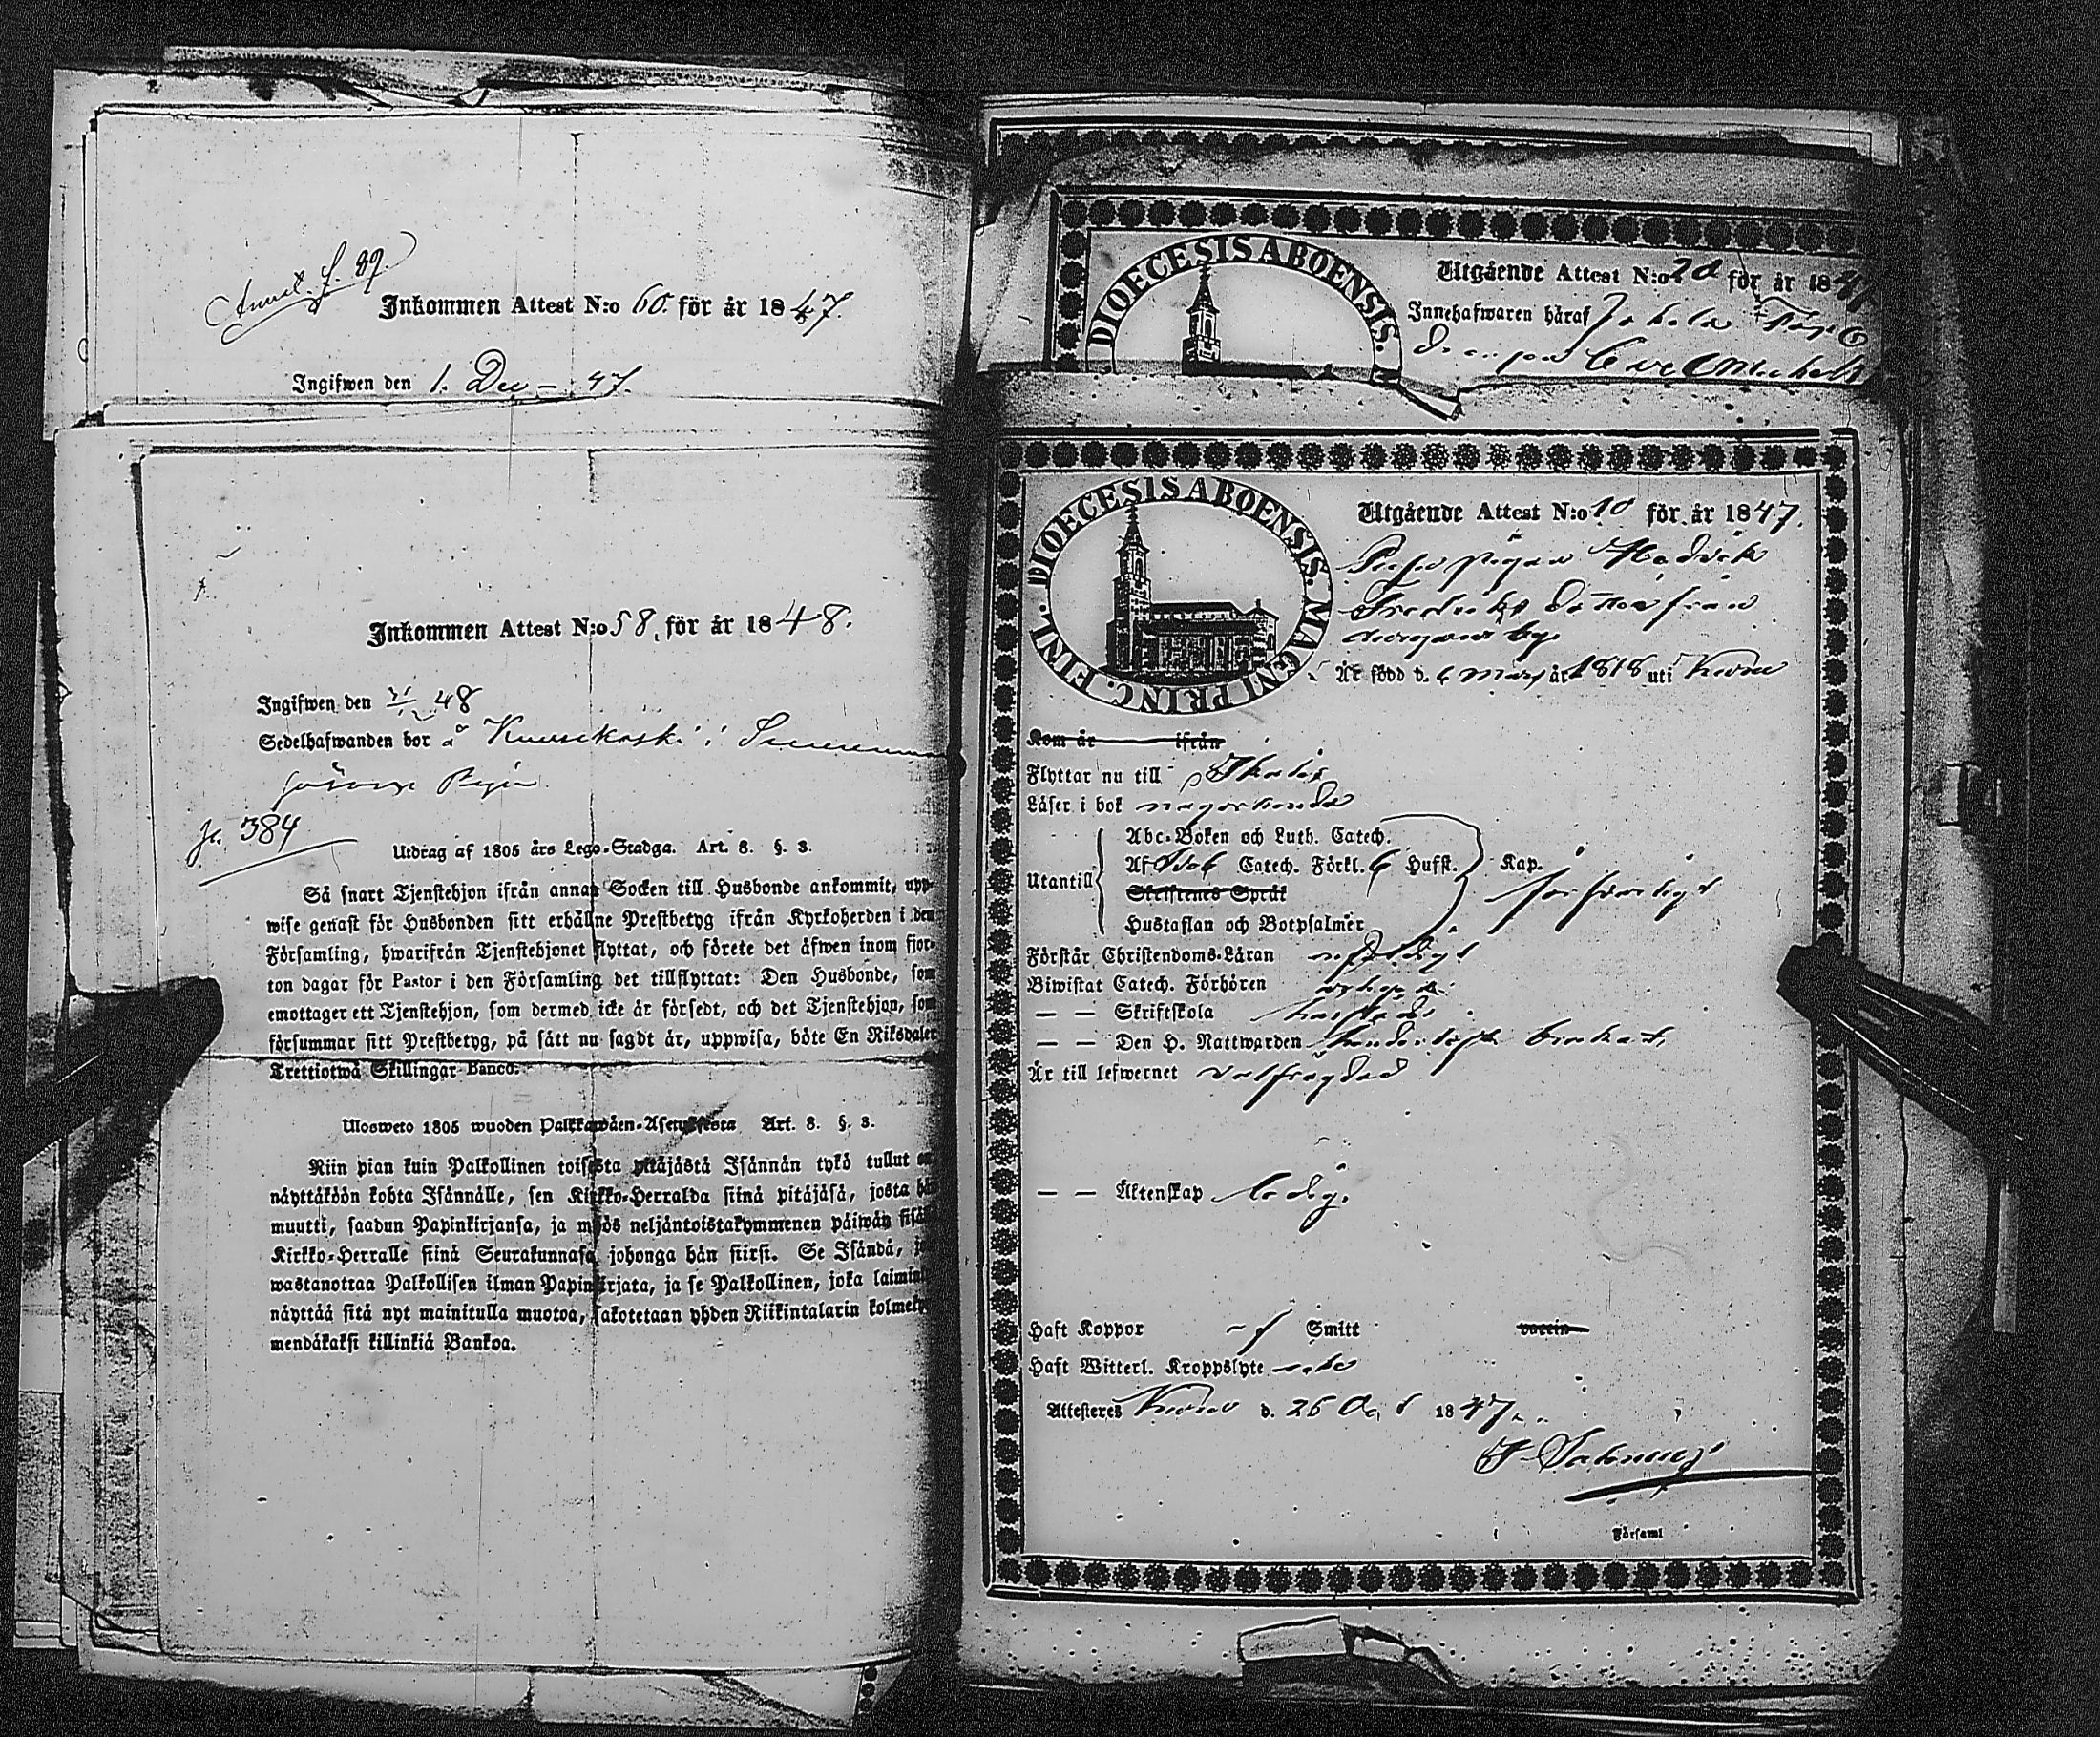 Annot. f. 89.
Inkommen Attest N:o 60. för år 1847.
Ingifwen den 1. Dec — 47.
Inkommen Attest N:o 58, för år 1848.
Ingifwen den 48
Sedelhafwanden bor å i
fr. 384
Utdrag af 1805 års Lego-Stadga. Art. 8. §. 3.
Så snart Tjenstehjon ifrån annan Socken till Husbonde ankommit, upp-
wise genast för Husbonden sitt erhållne Prestbetyg ifrån Kyrkoherden i den
Församling, hwarifrån Tjenstehjonet flyttat, och förete det äfwen inom fjor-
ton dagar för Pastor i den Församling det tillflyttat: Den Husbonde, som
emottager ett Tjenstehjon, som dermed icke är försedt, och det Tjenstehjon, som
försummar sitt Prestbetyg, på sätt nu sagdt är, uppwisa, böte En Riksdaler
Trettiotwå Skillingar Banco.
Ulosweto 1805 wuoden Palkkawäen-Asetuksesta Art. 8. §. 3.
Niin pian kuin Palkollinen toisesta pitäjästä Isännän tykö tullut on
näyttäköön kohta Isännälle, sen Kirkko-Herralda siinä pitäjäsä, josta hän
muutti, saadun Papinkirjansa, ja myös neljäntoistakymmenen päiwän sisällä
Kirkko-Herralle siinä Seurakunnasa, johonga hän siirsi. Se Isändä, jo
wastanottaa Palkollisen ilman Papinkirjata, ja se Palkollinen, joka laiminly
näyttää sitä nyt mainitulla muotoa, sakotetaan yhden Riikintalarin kolmeky
mendäkaksi killinkiä Bankoa.
DIOECESIS ABOENSIS.
Utgående Attest N:o 20 för år 1847
Innehafwaren häraf
DIOECESIS ABOENSIS. MAGNI PRINC. FINL.
Utgående Attest N:o 10 för år 1847.
Pigan Hedvik
Fredriks dotter från
by
Är född d. 6 Mars år 1818 uti Kumo
Kom år ifrån
Flyttar nu till
Läser i bok någorlunda
Abc-Boken och Luth. Catech.
Utantill Af Catech. Förkl. 6 Hufst. Kap.
Skriftenes Språk
Hustaflan och Botpsalmer försvarligt
Förstår Christendoms-Läran
Biwistat Catech. Förhören
— — Skriftskola
— — Den H. Nattwarden
Är till lefwernet välfrägdad
— — Äktenskap ledig.
Haft Koppor Smitt vaccin
Haft Witterl. Kroppslyte
Attesteras Kumo d. 26 Oct 1847.
Församl